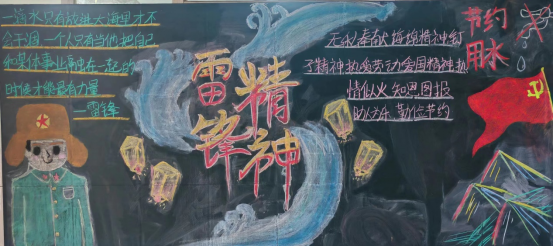 一滴水只有放进大海里才不
会干涸一个人只有当他把自己
和集体事业融在一起的
时候才能最有力量
—雷锋
雷锋
精神
无私奉献拼搏精神钉
子精神热爱劳动爱国精神热
情似火知恩图报
助人为乐 勤俭节约
节约
用水